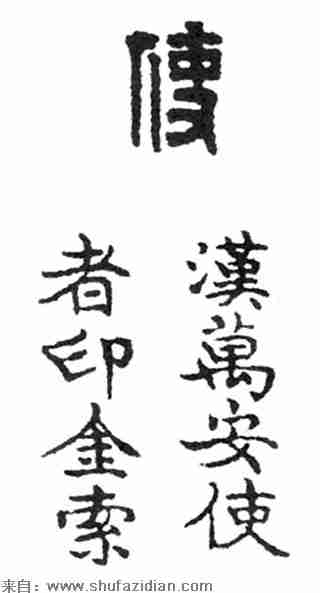 使
漢萬安使
者印金索
来自：www.shufazidian.com